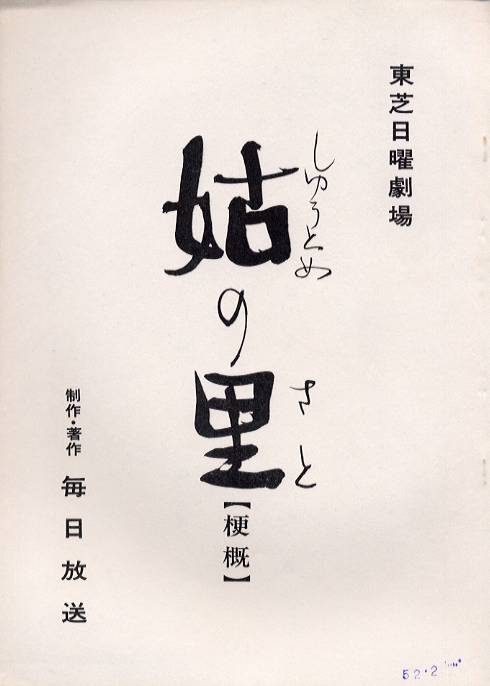 東芝日曜劇場
しゆうとめ
姑の里
さと
【梗概】
制作・著作 毎日放送
52・2